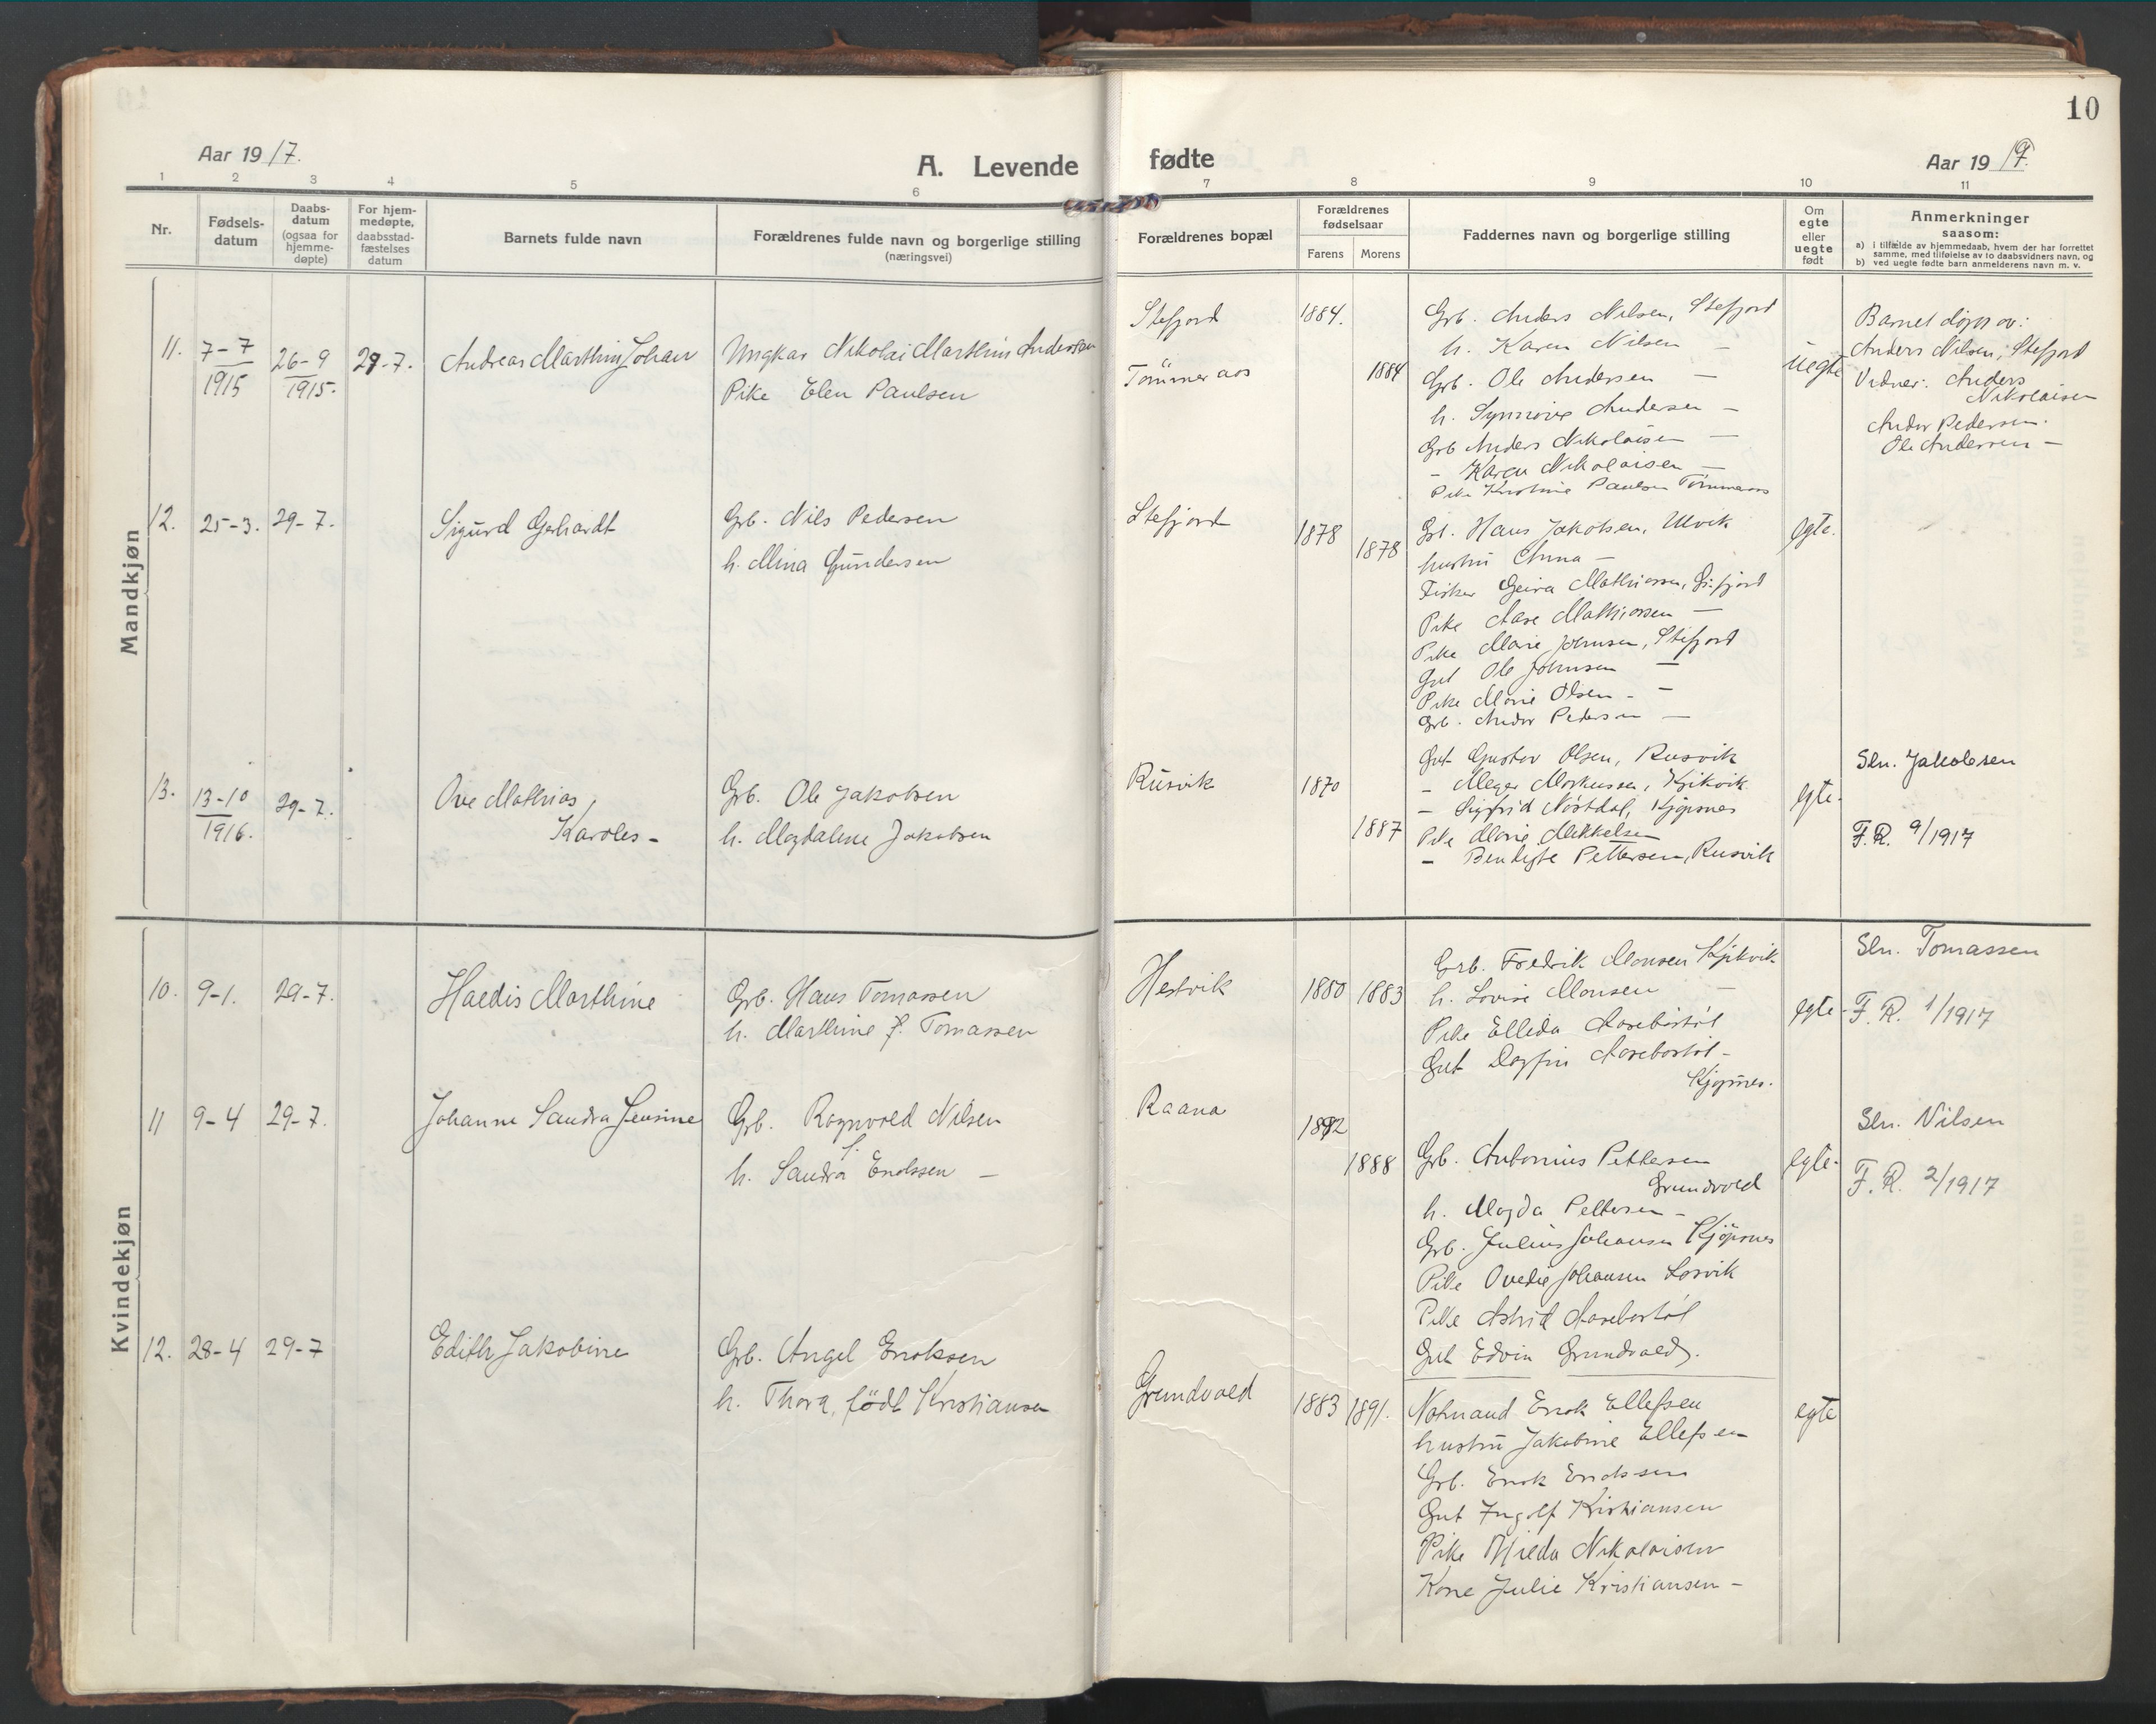 10
Aar 19 17.
A. Levende
fødte
Aar 19 17.
1 2 3 4 5 6 7 8 9 10 11
Nr.
Fødsels-
datum
Daabs-
datum
(ogsaa for
hjemme-
døpte)
For hjem-
medøpte,
daabsstad-
fæstelses
datum
Barnets fulde navn
Forældrenes fulde navn og borgerlige stilling
(næringsvei)
Forældrenes bopæl
Forældrenes
fødselsaar
Farens
Morens
Faddernes navn og borgerlige stilling
Om
egte
eller
uegte
født
Anmerkninger
saasom:
a) i tilfælde av hjemmedaab, hvem der har forrettet
samme, med tilføielse av to daabsvidners navn, og
b) ved uegte fødte barn anmelderens navn m. v.
Mandkjøn
11. 7-7 1915 26-9 1915. 29-7. Andreas Marthin Johan
Ungkar Nikolai Marthin Andersen
Pike Elen Paulsen
Stefjord 1884.
Tømmeraas 1884
Grb. Anders Nilsen, Stefjord
h. Karen Nilsen —
Grb. Ole Andersen —
h. Synnøve Andersen —
Grb Anders Nikolaisen —
- Karen Nikolaisen —
Pike Kristine Paulsen Tømmeraas
uegte
Barnet døpt av:
Anders Nilsen, Stefjord
Vidner: Anders
Nikolaisen
Andor Pedersen.
Ole Andersen —
12. 25-3. 29-7. Sigurd Gerhardt
Grb. Nils Pedersen
h. Mina Gundersen
Stefjord 1878 1878
Grb. Hans Jakobsen, Ulvik
hustru Anna —
Fisker Geira Mathiassen,
Pike Aase Mathiassen —
Pike Marie Johnsen, Stefjord
Gut Ole Johnsen —
Pike Marie Olsen —
Grb. Andor Pedersen —
egte.
13. 13-10 1916. 29-7. Ove Mathias
Karoles -
Grb. Ole Jakobsen
h. Magdalene Jakobsen
Rusvik 1870 1887
Gut Gustav Olsen, Rusvik
- Meyer Markussen, Kjikvik
- Sigfrid Nøstdal, Kjøpsnes
Pike Marie Mikkelsen
- Bendigte Pettersen, Rusvik
egte.
Sln. Jakobsen
F.R. 9/1917
Kvindekjøn
10. 9-1. 29-7. Haedis Marthine
Grb. Hans Tomassen
h. Marthine f. Tomassen
Hestvik 1880 1883
Grb. Fredrik Monsen Kjikvik
h. Lovise Monsen —
Pike Ellida Aasebøstøl
Gut Dagfin Aasebøstøl -
Kjøpnes.
egte -
Sln. Tomassen
F.R. 1/1917
11 9-4 29-7. Johanne Sandra Jensine
Grb. Ragnvald Nilsen
h. Sandra f. Enokssen —
Raana 1892 1888
Grb. Antonius Pettersen
Grundvold
h. Magda Pettersen -
Grb. Julius Johansen Kjøpsnes
Pike Ovedie Johansen Lasvik
Pike Astrid Aasebøstøl
Gut Edvin Grundvald.
egte.
Sln. Nilsen
F.R. 2/1917
12. 28-4 29-7 Edith Jakobine
Grb. Angel Enoksen
h. Thora, født Kristiansen
Grundvold 1883 1891.
Notmand Enok Ellefsen
hustru Jakobine Ellefsen
Grb. Enok Enokssen
Gut Ingolf Kristiansen
Pike Hilda Nikolaisen
Kone Julie Kristiansen -
egte